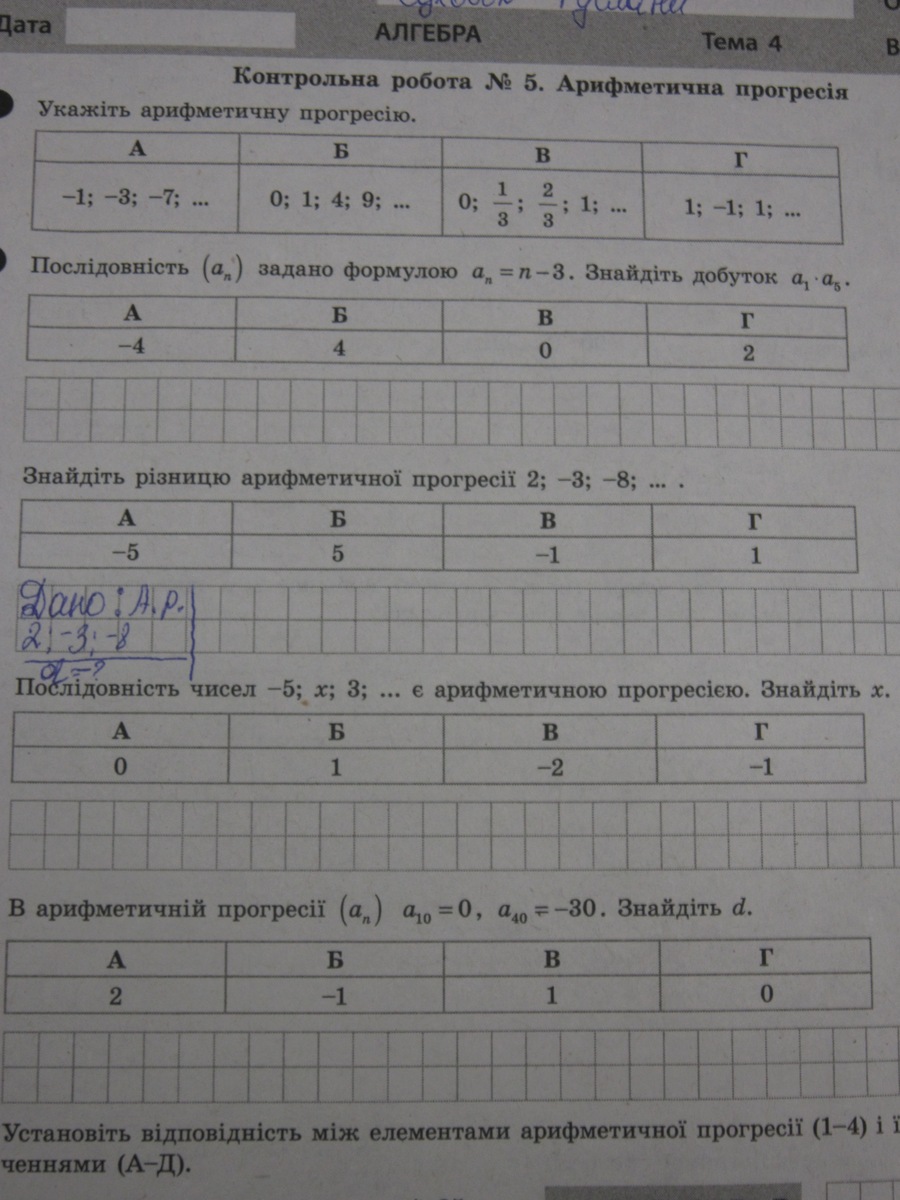 Дата
АЛГЕБРА
Тема 4
Контрольна робота № 5. Арифметична прогресія
Укажіть арифметичну прогресію.
А Б В Г
−1; −3; −7; ... 0; 1; 4; 9; ... 0; 1/3; 2/3; 1; ... 1; −1; 1; ...
Послідовність (aₙ) задано формулою aₙ = n − 3. Знайдіть добуток a₁ · a₅.
А Б В Г
−4 4 0 2
Знайдіть різницю арифметичної прогресії 2; −3; −8; ... .
А Б В Г
−5 5 −1 1
Дано: А.р.
2; −3; −8
d = ?
Послідовність чисел −5; x; 3; ... є арифметичною прогресією. Знайдіть x.
А Б В Г
0 1 −2 −1
В арифметичній прогресії (aₙ) a₁₀ = 0, a₄₀ = −30. Знайдіть d.
А Б В Г
2 −1 1 0
Установіть відповідність між елементами арифметичної прогресії (1–4) і ї
ченнями (А–Д).